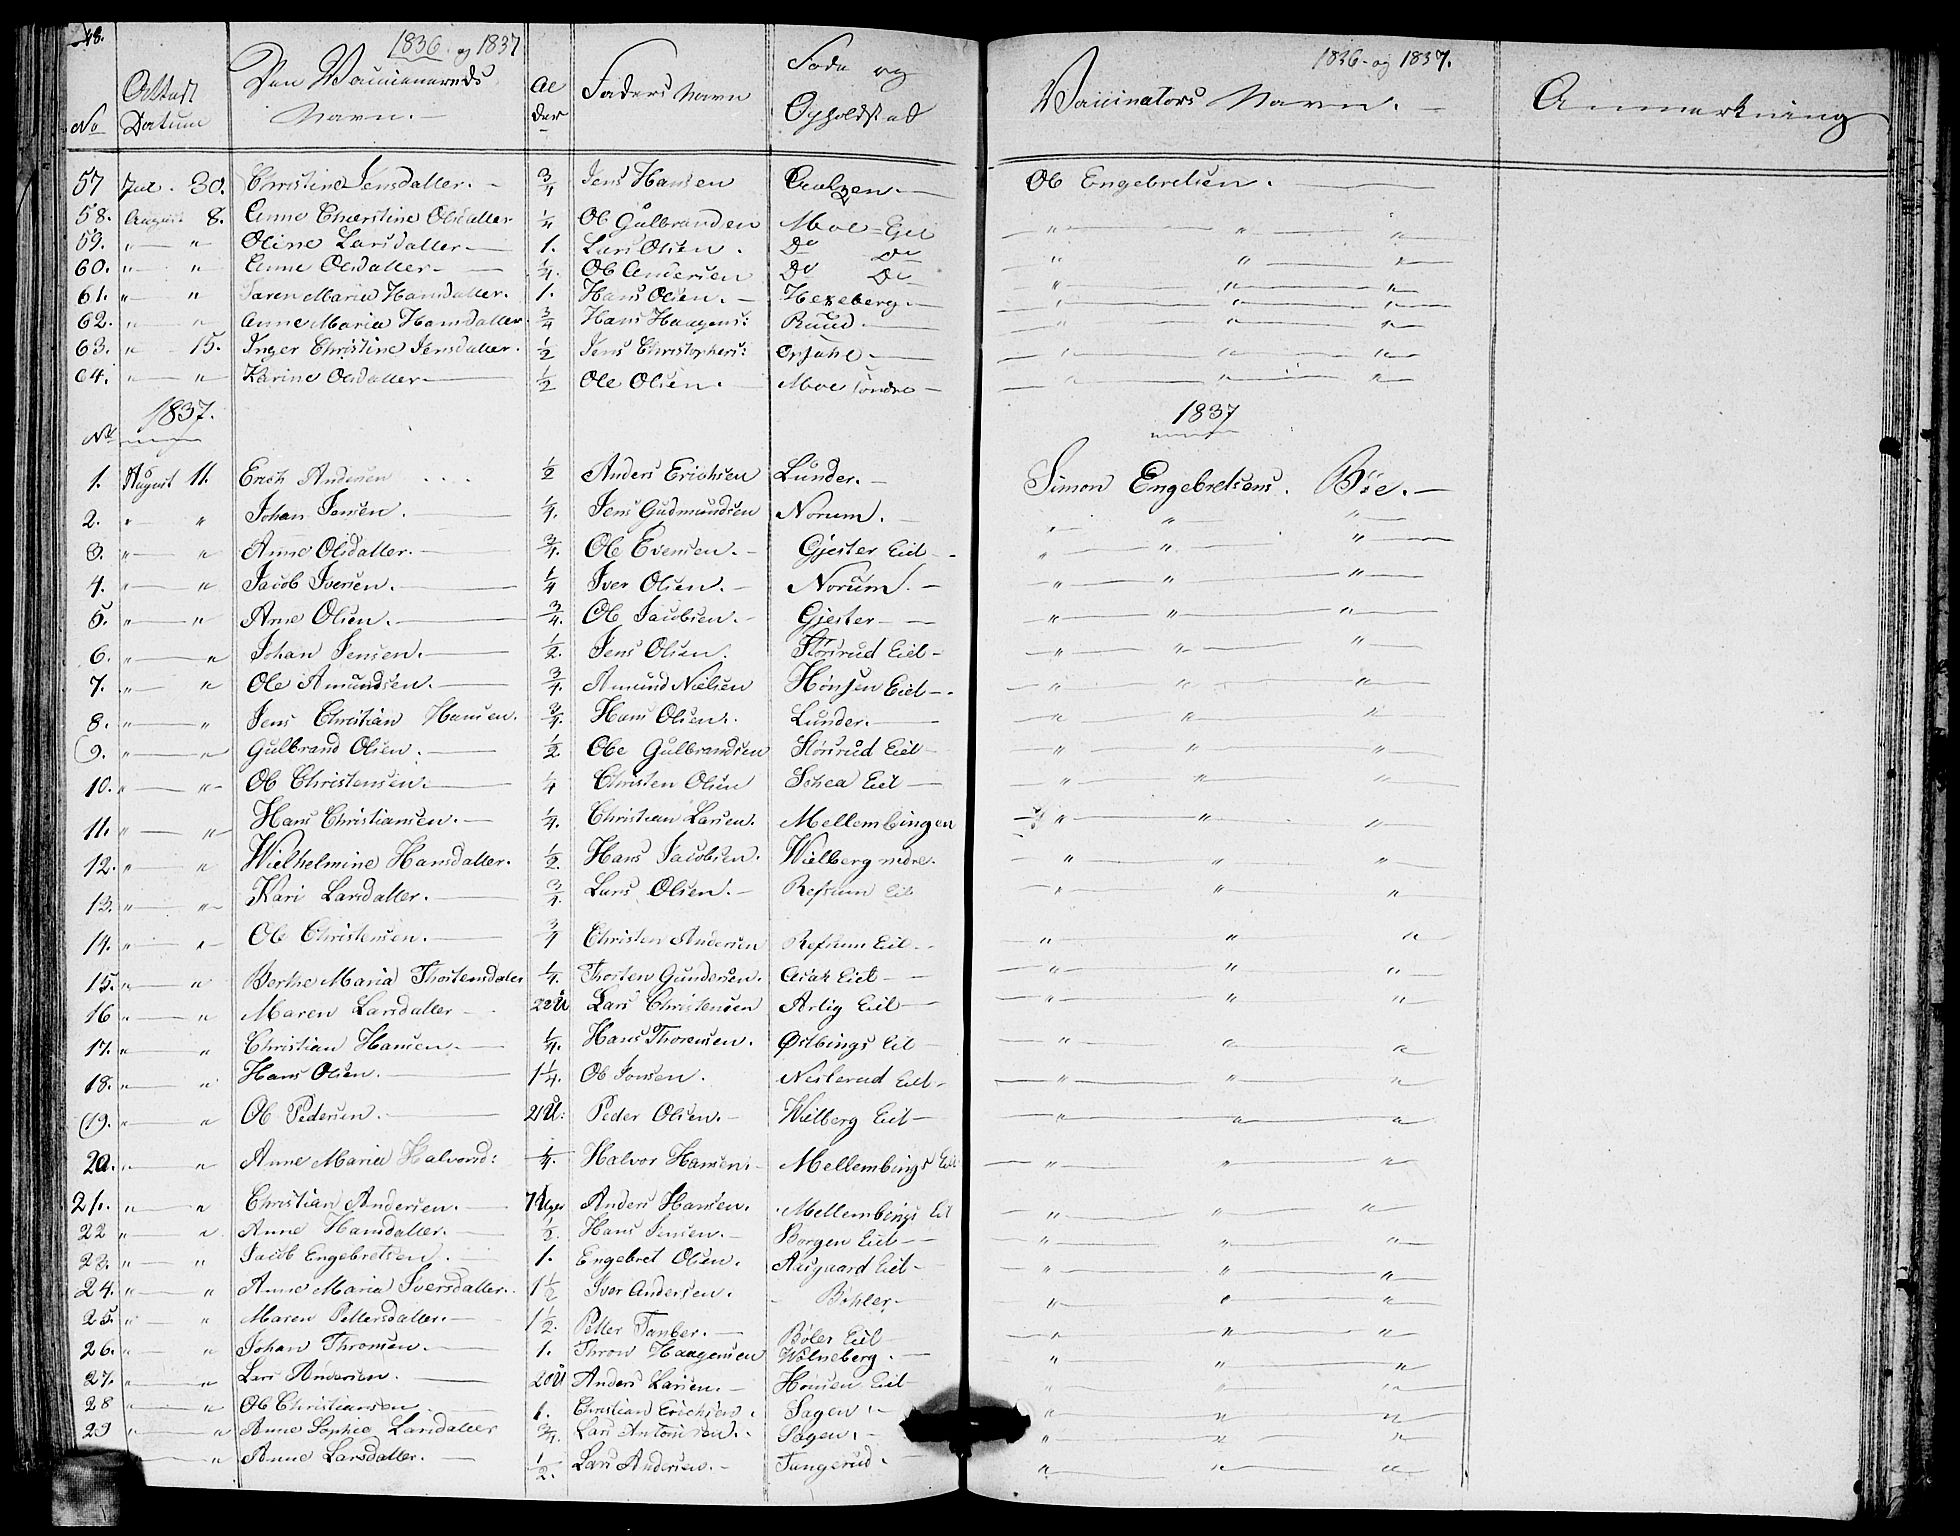 48.
1836 og 1837
1836 og 1837.
No Attest Datum Den Vaccineredes Navn. Alder Faders Navn Føde og Opholdsted Vaccinators Navn. Anmærkning
57 Jul. 30. Christine Jensdatter. 3/4 Jens Hansen Ole Engebretsen.
58. August 8. Anne Christine Olsdatter 1/4 Ole Gulbranden Moe Eiet " " "
59. " " Oline Larsdatter 1. Lars Olsen. Do Do " " "
60. " " Anne Olsdatter 1/4. Ole Andersen Do Do " " "
61. " " Karen Maria Hansdatter. 1. Hans Olsen. Hexeberg. " " "
62. " " Anne Maria Hansdatter 3/4 Hans Haagens: Ruud. " " "
63. " 15. Inger Christine Jensdatter. 1/2 Jens Christophers: Opsahl " " "
64. " " Karine Olsdatter 1/2 Ole Olsen. Moe søndre " " "
1837. 1837
No
1. August 11. Erich Andersen 1/2 Anders Erichsen Lunder. Simon Engebretsens. Bøe.
2. " " Johan Jensen. 1/4. Jens Gudmundsen Norum. " " "
3. " " Anne Olsdatter. 3/4. Ole Evensen. Gjester Eiet " " "
4. " " Jacob Iversen. 1/4 Iver Olsen. Norum. " " "
5. " " Arne Olsen. 3/4. Ole Jacobsen. Gjester " " "
6. " " Johan Jensen. 1/2. Jens Olsen. Størsrud Eiet " " "
7. " " Ole Amundsen. 3/4. Amund Nielsen Hønsen Eiet " " "
8. " " Jens Christian Hansen. 3/4. Hans Olsen. Lunder. " " "
9. " " Gulbrand Olsen. 1/2 Ole Gulbrandsen Størsrud Eiet " " "
10. " " Ole Christensen. 1/4 Christen Olsen Schea Eiet " " "
11. " " Hans Christiansen. 1/4. Christian Larsen. Mellembingen " " "
12. " " Wielhelmine Hansdatter. 1/2 Hans Jacobsen. Wielberg nedre. " " "
13. " " Kari Larsdatter. 3/4. Lars Olsen. Refsum Eiet " " "
14. " " Ole Christensen. 3/4 Christen Andersen Refsum Eiet " " "
15. " " Berthe Maria Thostensdatter 1/4. Thosten Gundersen. Asak Eiet " " "
16 " " Maren Larsdatter 22 U Lars Christensen Arlig Eiet " " "
17. " " Christian Hansen. 1/4. Hans Thoresen. Østbings Eiet " " "
18. " " Hans Olsen. 1 1/4. Ole Jonsen. Neslerud Eiet " " "
19. " " Ole Pedersen. 21 U: Peder Olsen. Wielberg Eiet " " "
20. " " Anne Maria Halvorsd: 1/4. Halvor Hansen. Mellembings Eiet " " "
21. " " Christian Andersen. 7 Uger Anders Hansen. Mellembings Eiet " " "
22 " " Anne Hansdatter. 1/2. Hans Jensen. Borgen Eiet " " "
23. " " Jacob Engebretsen. 1. Engebret Olsen. Aasgaard Eiet " " "
24. " " Anne Maria Iversdatter. 1 1/2 Iver Andersen. Böhler " " "
25. " " Maren Pettersdatter. 1 1/2. Petter Tanber. Böler Eiet " " "
26. " " Johan Thronsen. 1. Thron Haagensen Wolneberg. " " "
27. " " Lars Andersen. 20 U Anders Larsen. Hönsen Eiet " " "
28 " " Ole Christiansen 1. Christian Erichsen. Hagen. " " "
29 " " Anne Sophie Larsdatter 3/4. Lars Antonisen. Hagen. " " "
" Anne Larsdatter. 1/2. Lars Andersen. Tangerud. " " "